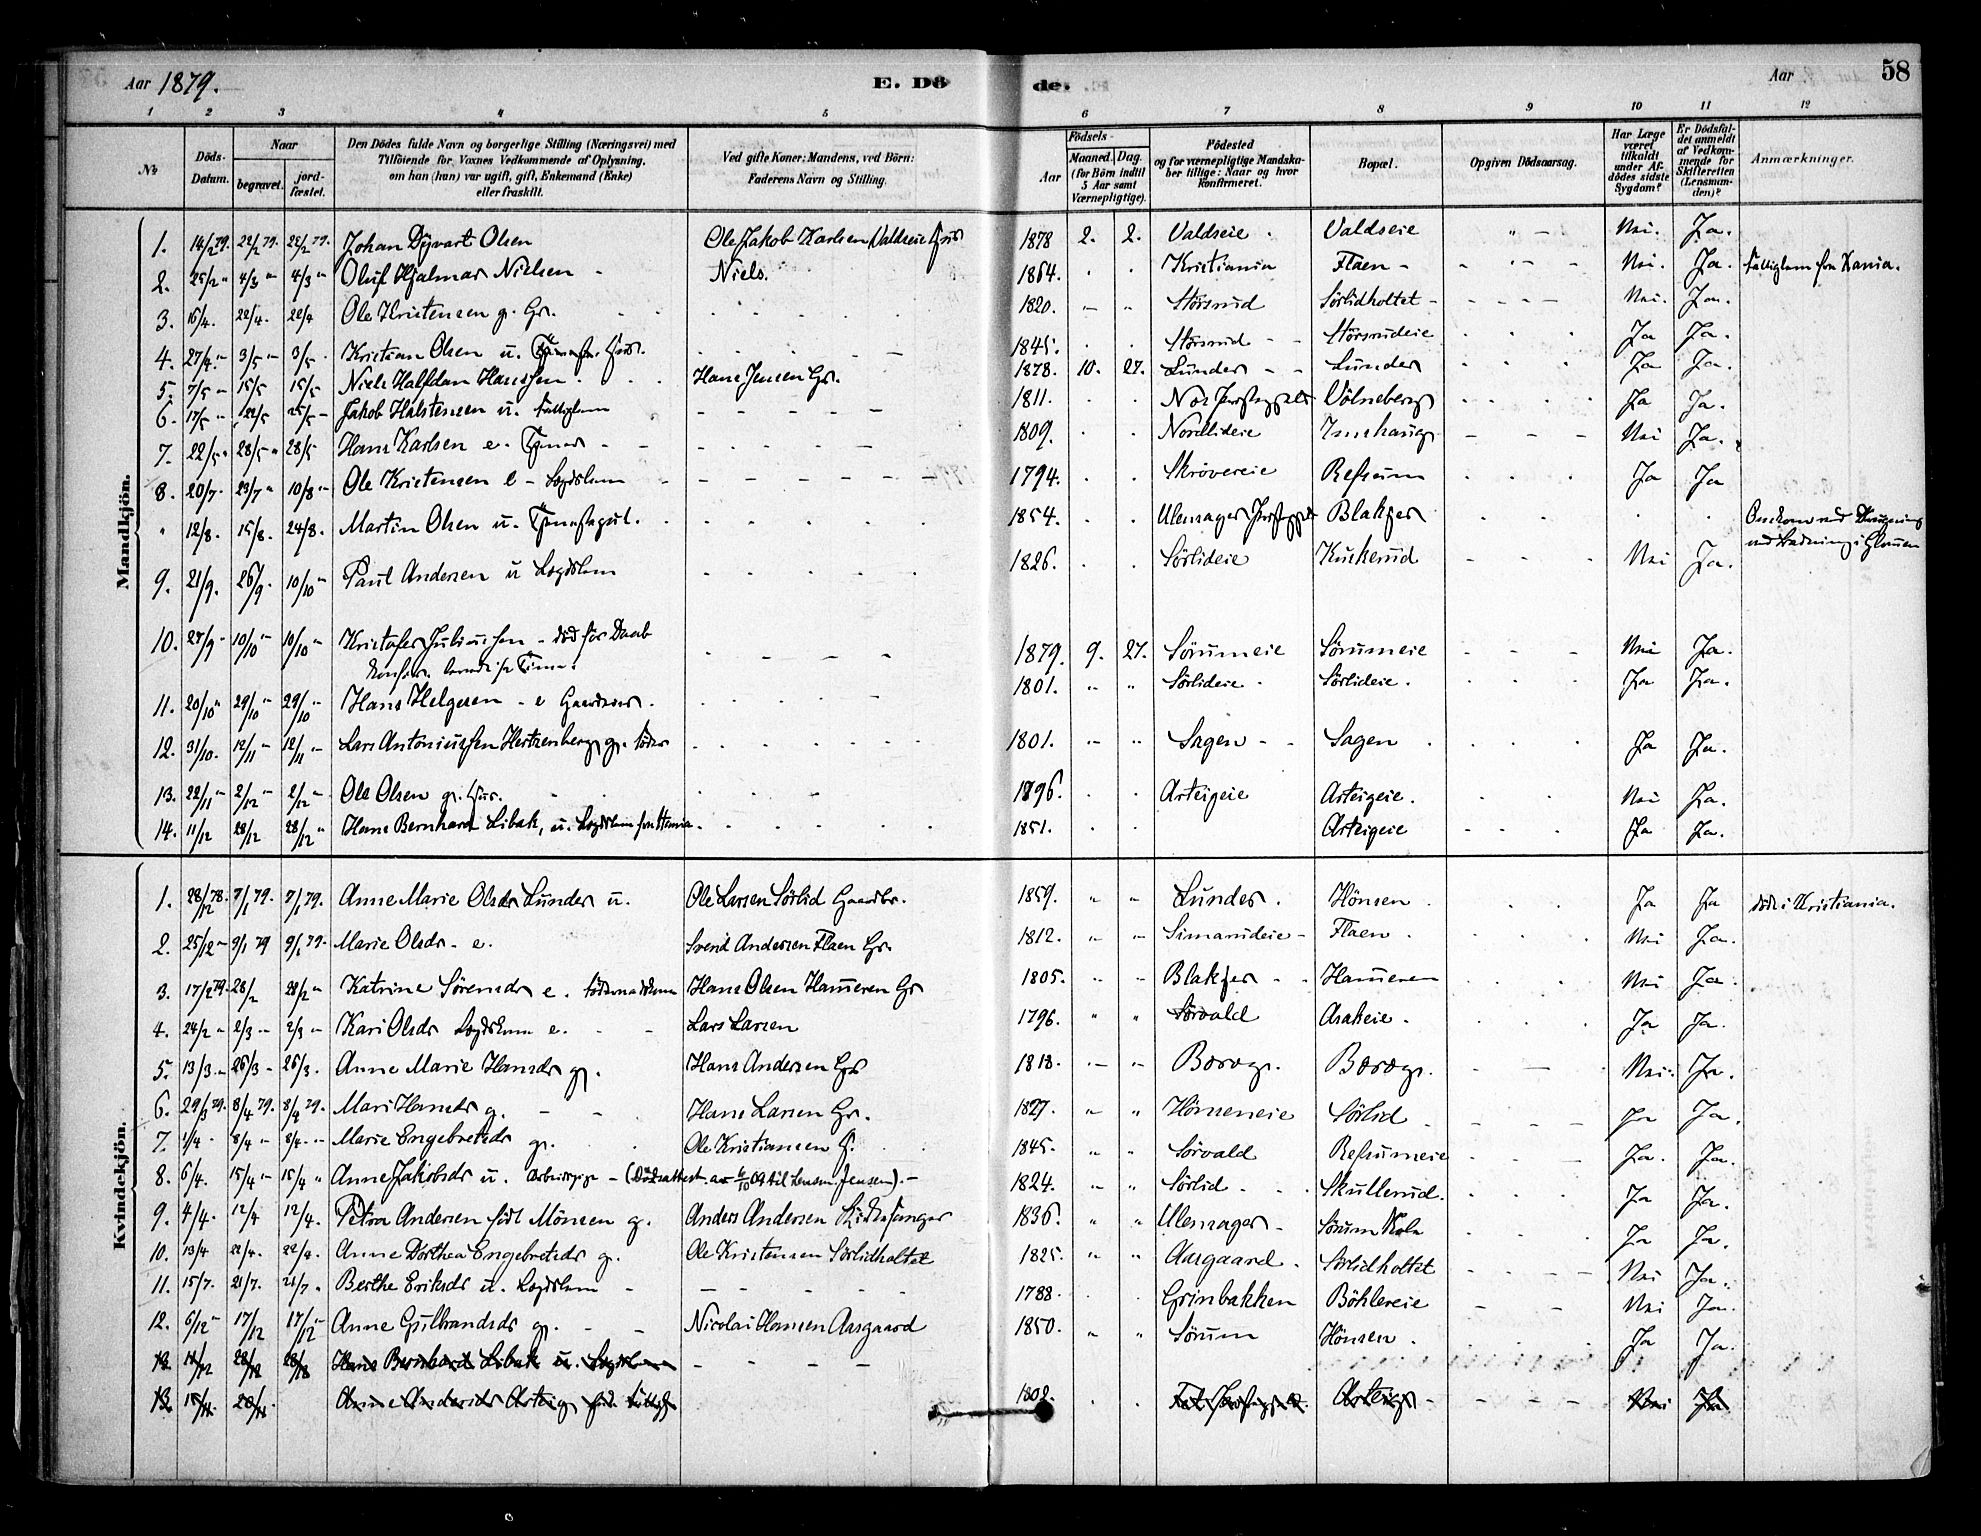 Aar 1879. E. Dö de. Aar 58
1 2 3 4 5 6 7 8 9 10 11 12
No Döds-Datum. Naar begravet. jordfæstet. Den Dödes fulde Navn og borgerlige Stilling (Næringsvei) med Tilföiende for Voxnes Vedkommende af Oplysning, om han (hun) var ugift, gift, Enkemand (Enke) eller fraskilt. Ved gifte Koner: Mandens, ved Börn: Faderens Navn og Stilling. Aar Födsels- Maaned. Dag. (for Börn indtil 5 Aar samt Værnepligtige). Födested og for værnepligtige Mandskaber tillige: Naar og hvor konfirmeret. Bopæl. Opgiven Dödsaarsag. Har Læge været tilkaldt under Afdödes sidste Sygdom? Er Dödsfaldet anmeldt af Vedkommende for Skifteretten (Lensmanden)? Anmærkninger.
Mandkjön.
1. 14/2 79. 22/2 79. 22/2 79. Johan Dyvart Olsen Ole Jakob Karlsen Valdseie 1878 2. 2. Valdseie Valdseie Nei. Ja.
2. 25/2 " 4/3 " 4/3 " Oluf Hjalmar Nielsen Niels. 1864. Kristiania Flaen Nei. Ja. Fattiglem fra Xania.
3. 16/4. 22/4. 22/4 Ole Kristensen g. Gr. 1820. Störsrud Sörlidholtet Nei. Ja.
4. 27/4. 3/5 3/5. Kristian Olsen u. 1845. Störsrud Störsrudeie Ja Ja.
5. 7/5 15/5 15/5 Niels Halfdan Hanssen. Hans Jensen Gr. 1878. 10. 27. Lunder Lunder Ja Ja.
6. 17/5 22/5 25/5 Jakob Halstensen u. Fattiglem 1811. Nes Præstegjeld Völneberg Ja Ja.
7. 22/5 28/5 28/5 Hans Karlsen e. 1809. Nordlideie Nei Ja.
8. 20/7. 23/7 10/8 Ole Kristensen e Lægdslem 1794. Skrövereie Refsum Ja Ja
" 12/8. 15/8. 24/8. Martin Olsen u. Tjenestegut. 1854. Ullensager Præstegjeld Blakjer Omkom ved
9. 21/9. 26/9. 10/10 Paul Andersen u Lægdslem 1826. Sörlideie Kukerud Nei Ja.
10. 27/9 10/10 10/10 Kristofer Juliussen - död för Daab 1879. 9. 27. Sörumeie Sörumeie Nei Ja.
11. 20/10 29/10 29/10 Hans Helgesen - e 1801. Sörlideie Sörlideie. Ja Ja.
12. 31/10. 12/11 12/11 Lars Antoniussen Hertzenberg g. 1801. Sagen Sagen Ja Ja.
13. 22/11 2/12 2/12 Ole Olsen g. 1796. Arteigeie Arteigeie. Nei Ja.
14. 11/12 28/12 28/12 Hans Bernhard Libak, u. Lægdslem 1851. Arteigeie Ja Ja.
Kvindekjön.
1. 28/12 78. 7/1 79. 7/1 79. Anne Marie Olsdr Lunder u. Ole Larsen Sörlid Gaardbr. 1859. Lunder. Hönsen Ja Ja död i Kristiania.
2. 25/12 9/1 79 9/1 79. Marie Olsdr. e. Svend Andersen Flaen Gr. 1812. Simarudeie Flaen Nei Ja.
3. 17/2 79. 28/2 28/2 Katrine Sörensdr e. Hans Olsen Hammeren Gr 1805. Blakjer Hammeren Nei Ja.
4. 24/2 2/3 2/3 Kari Olsdr Lægdslem e. Lars Larsen 1796. Sörvald Asakeie. Ja Ja.
5. 13/3 26/3 26/3. Anne Marie Hansdr g. Hans Andersen Gr 1818. Borog. Borog. Nei. Ja.
6. 29/3 79. 8/4 79. 8/4 79. Mari Hansdr g. Hans Larsen Gr. 1827. Hömeneie Sörlid Ja Ja.
7. 1/4 8/4 8/4. Marie Engebretsdr g. Ole Kristiansen 1845. Sörvald Refsumeie Ja. Ja.
8. 6/4. 15/4 15/4 Anne Jakobsdr u. (Dödsattest av 6/10 09 til Lensm. Jensen). 1824. Sörlid Skullerud. Ja Ja.
9. 4/4. 12/4 12/4. Petra Andersen född Mönsen g. Anders Andersen Kirkesanger 1836. Ullensager Sörum Skole Ja Ja.
10. 13/4 22/4. 22/4. Anne Dorthea Engebretsdr g. Ole Kristensen Sörlidholtet 1825. Aasgaard. Sörlidholtet Nei Ja.
11. 15/7. 21/7. 21/7 Berthe Eriksdr u. Lægdslem 1788. Grinbakken Böhlereie Nei Ja.
12. 6/12 17/12 17/12 Anne Gulbrandsdr g. Nicolai Hansen Aasgaard 1850. Sörum Hönsen. Ja Ja.
13. 11/12 28/12 28/12 Hans Bernhard Libak u. Lægdslem
13. 15/11. 20/11. Anne Andersdr Arteig 1802. Fet Præstegjeld. Arteig Nei Ja